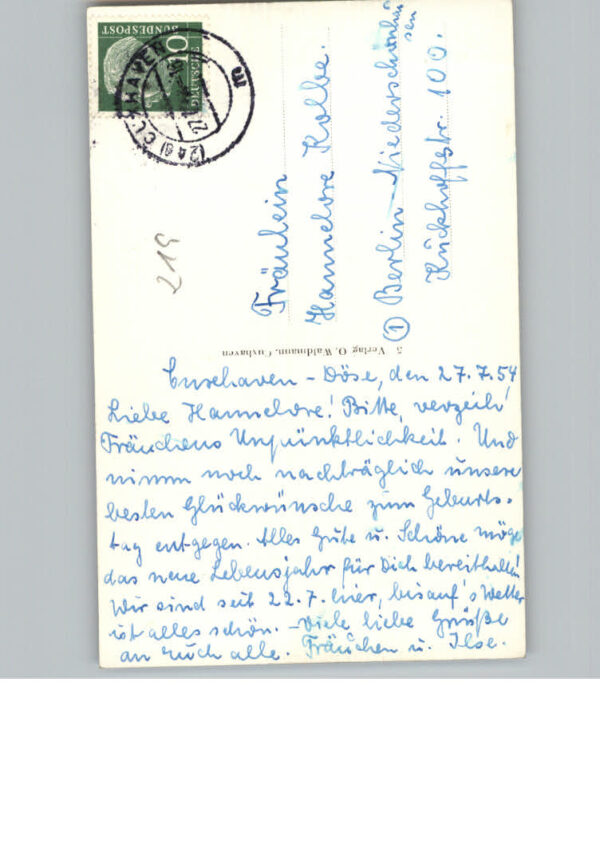 DEUTSCHE
BUNDESPOST
(24a) CUXHAVEN
27
3
219
Fräulein
Hannelore Kolbe.
① Berlin-Niederschönhau
sen
Kuckhoffstr. 100.
5 Verlag O. Waldmann, Cuxhaven
Cuxhaven - Döse, den 27.7.54
Liebe Hannelore! Bitte, verzeih'
Fräuchens Unpünktlichkeit. Und
nimm noch nachträglich unsere
besten Glückwünsche zum Geburts-
tag entgegen. Alles Gute u. Schöne möge
das neue Lebensjahr für Dich bereithalten!
Wir sind seit 22.7. hier, bis auf's Wetter
ist alles schön. - Viele liebe Grüße
an Euch alle. Fräuchen u. Ilse.